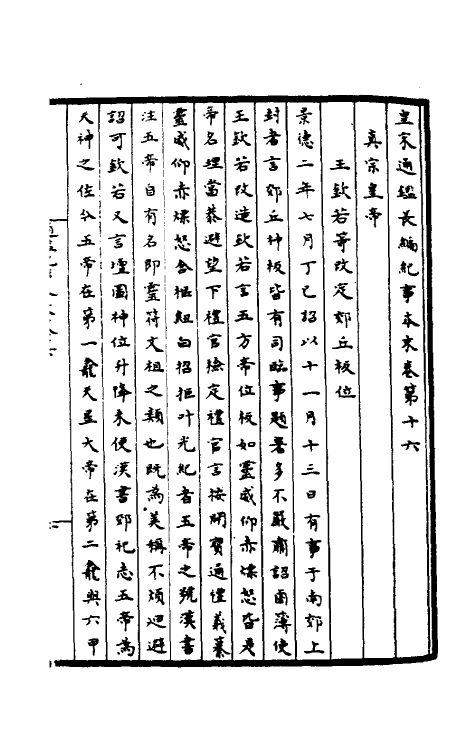 皇宋通鑑長編紀事本末卷第十六
真宗皇帝
王欽若等改定郊丘板位
景德二年七月丁巳詔以十一月十三日有事于南郊上
封者言郊丘神板皆有司臨事題署多不嚴肅詔鹵簿使
王欽若改造欽若言五方帝位板如靈威仰赤熛怒皆是
帝名理當恭避望下禮官檢定禮官言按開寶通禮義纂
靈威仰赤熛怒含樞紐白招拒叶光紀者五帝之號漢書
注五帝自有名即靈符文祖之類也既為美稱不煩迴避
詔可欽若又言壇圖神位升降未便漢書郊祀志五帝為
天神之佐今五帝在第一龕天皇大帝在第二龕與六甲